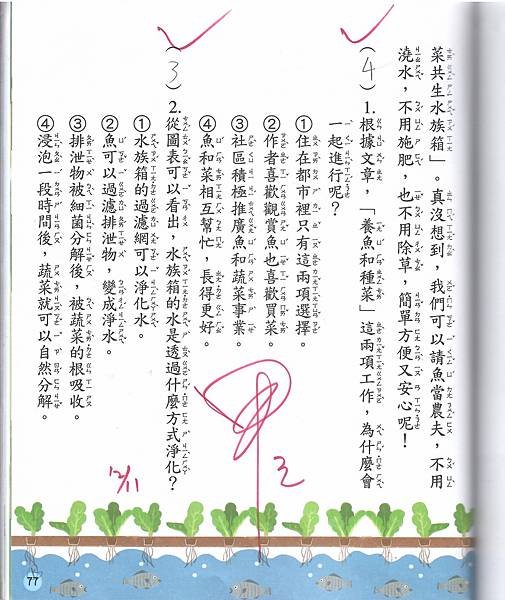 菜共生水族箱」。真沒想到，我們可以請魚當農夫，不用
澆水，不用施肥，也不用除草，簡單方便又安心呢！
（4）1.根據文章，「養魚和種菜」這兩項工作，為什麼會
一起進行呢？
①住在都市裡只有這兩項選擇。
②作者喜歡觀賞魚也喜歡買菜。
③社區積極推廣魚和蔬菜事業。
④魚和菜相互幫忙，長得更好。
（3）2.從圖表可以看出，水族箱的水是透過什麼方式淨化？
①水族箱的過濾網可以淨化水。
②魚可以過濾排泄物，變成淨水。
③排泄物被細菌分解後，被蔬菜的根吸收。
④浸泡一段時間後，蔬菜就可以自然分解。
12/11
77